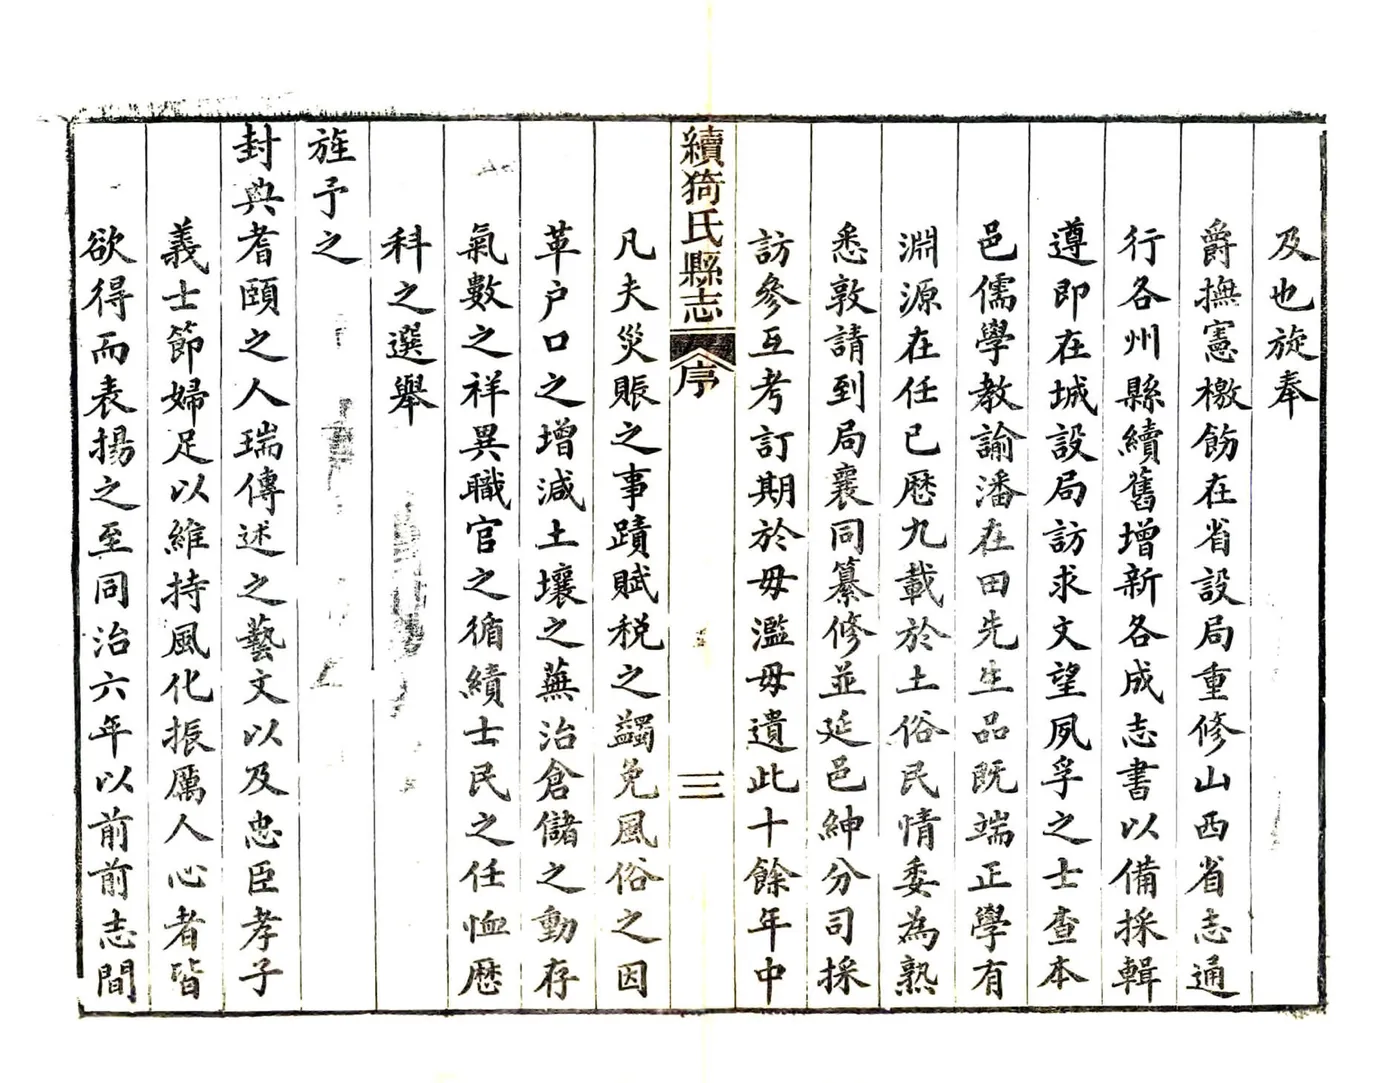 及也旋奉
爵撫憲檄飭在省設局重修山西省志通
行各州縣續舊增新各成志書以備採輯
遵即在城設局訪求文望夙孚之士查本
邑儒學教諭潘在田先生品既端正學有
淵源在任已歷九載於土俗民情委為熟
悉敦請到局襄同纂修並延邑紳分司採
訪參互考訂期於毋濫毋遺此十餘年中
續猗氏縣志
序
三
凡夫災賑之事蹟賦税之蠲免風俗之因
革户口之增減土壤之蕪治倉儲之動存
氣數之祥異職官之循績士民之任恤歷
科之選舉
旌予之
封典耆頤之人瑞傳述之藝文以及忠臣孝子
義士節婦足以維持風化振厲人心者皆
欲得而表揚之至同治六年以前前志間